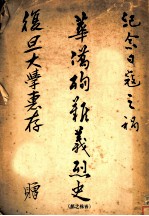 紀念日寇之禍
華滿殉難義烈史
復旦大學惠存
贈